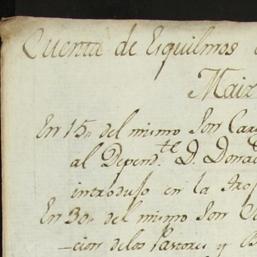 Cuenta de Esquilmos
Maiz
En 15,, del mismo Son Car
al Depend.te D. Dona
introdujo en la Trox
En 30,, del mismo Son
cion de los Pastores y